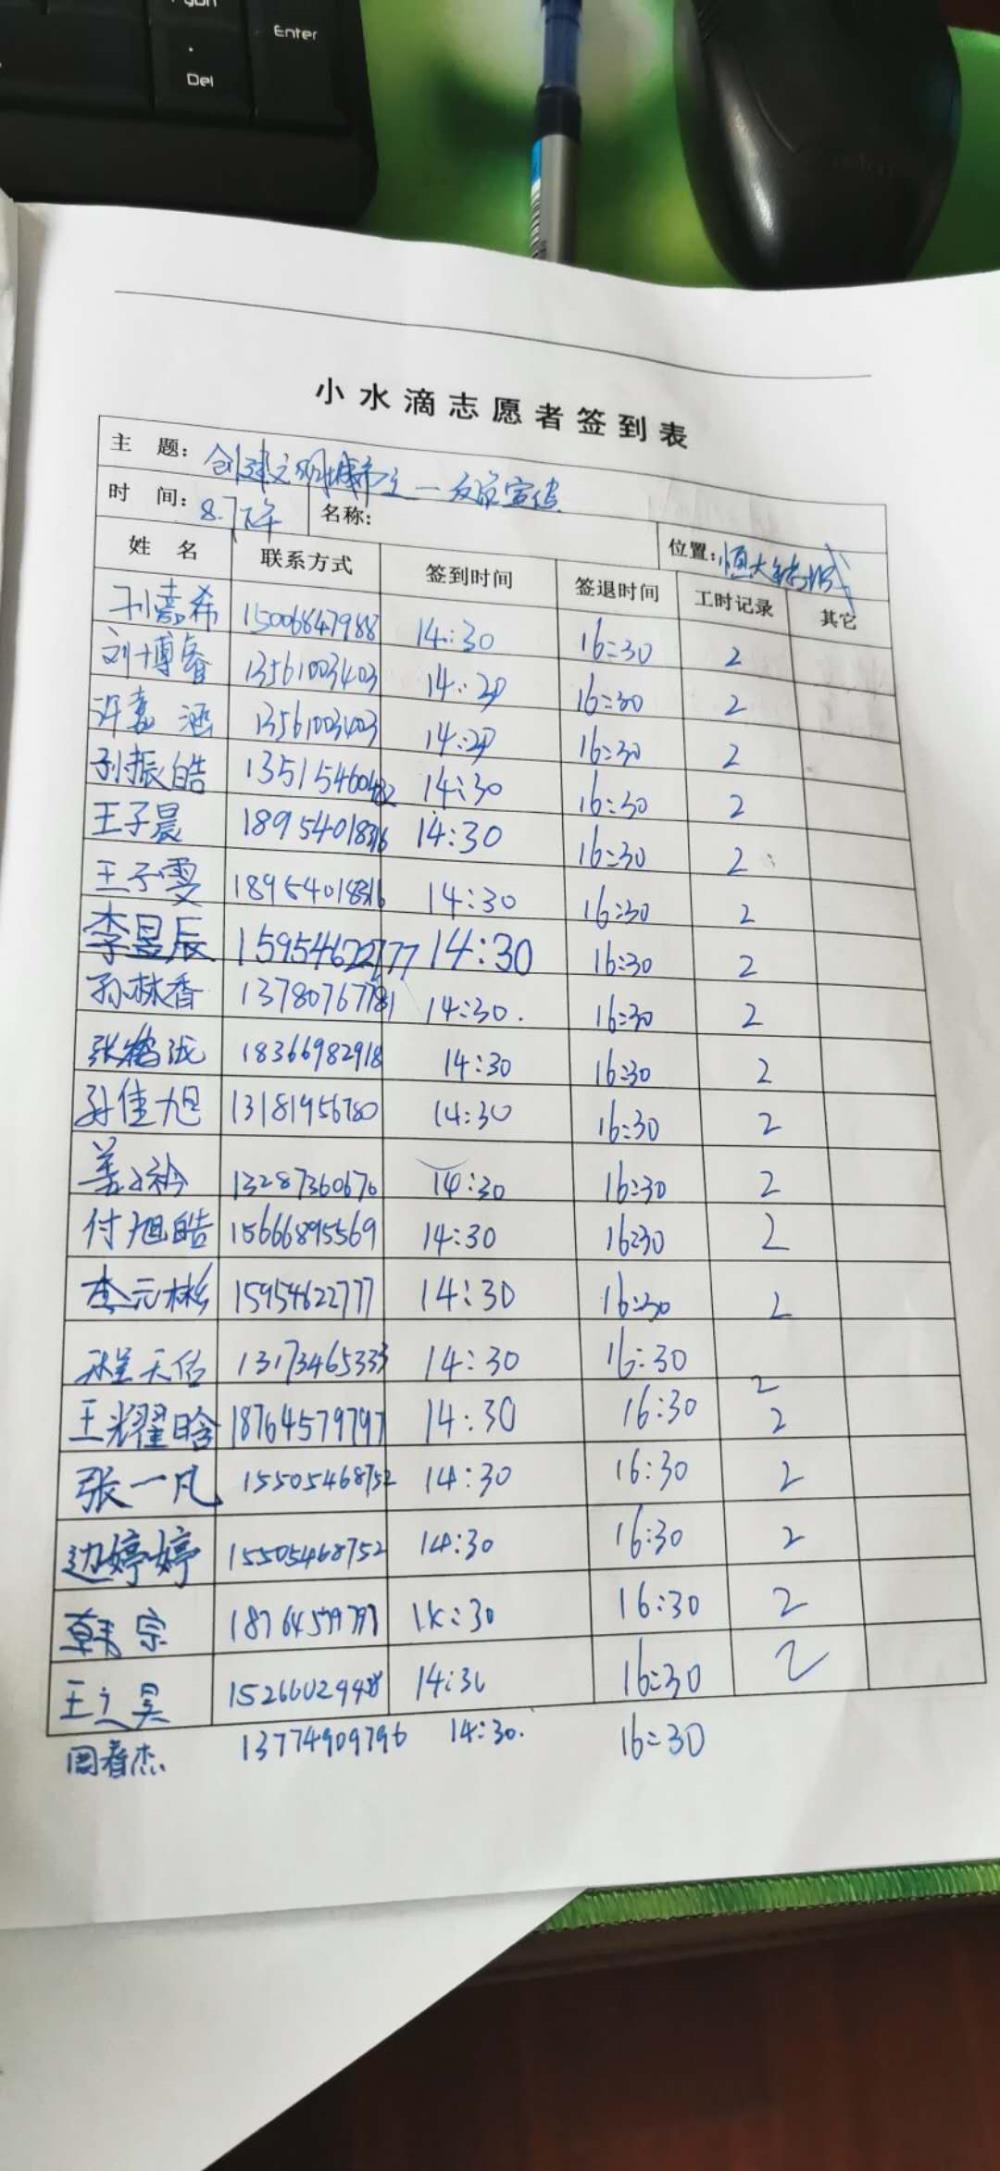 Enter
Del
小水滴志愿者签到表
主 题: 创建文明城市之一反家宣传
时 间: 8.7下午 名称: 位置: 恒大
姓 名 联系方式 签到时间 签退时间 工时记录 其它
孙嘉希 15006647988 14:30 16:30 2
刘博睿 13561003403 14:30 16:30 2
许嘉涵 13561003403 14:30 16:30 2
孙振皓 13515460482 14:30 16:30 2
王子晨 18954018316 14:30 16:30 2
王子雯 18954018316 14:30 16:30 2
李昱辰 15954622777 14:30 16:30 2
孙林香 13780767781 14:30. 16:30 2
张鹤泷 18366982918 14:30 16:30 2
孙佳旭 13181956780 14:30 16:30 2
姜 13287360670 14:30 16:30 2
付旭皓 15666895569 14:30 16:30 2
李元彬 15954622777 14:30 16:30 2
天佑 13173465333 14:30 16:30 2
王耀晗 18764579797 14:30 16:30 2
张一凡 15505468752 14:30 16:30 2
边婷婷 15505468752 14:30 16:30 2
韩宗 18764579797 14:30 16:30 2
王之昊 15266029948 14:30 16:30 2
周春杰 13774909796 14:30. 16:30